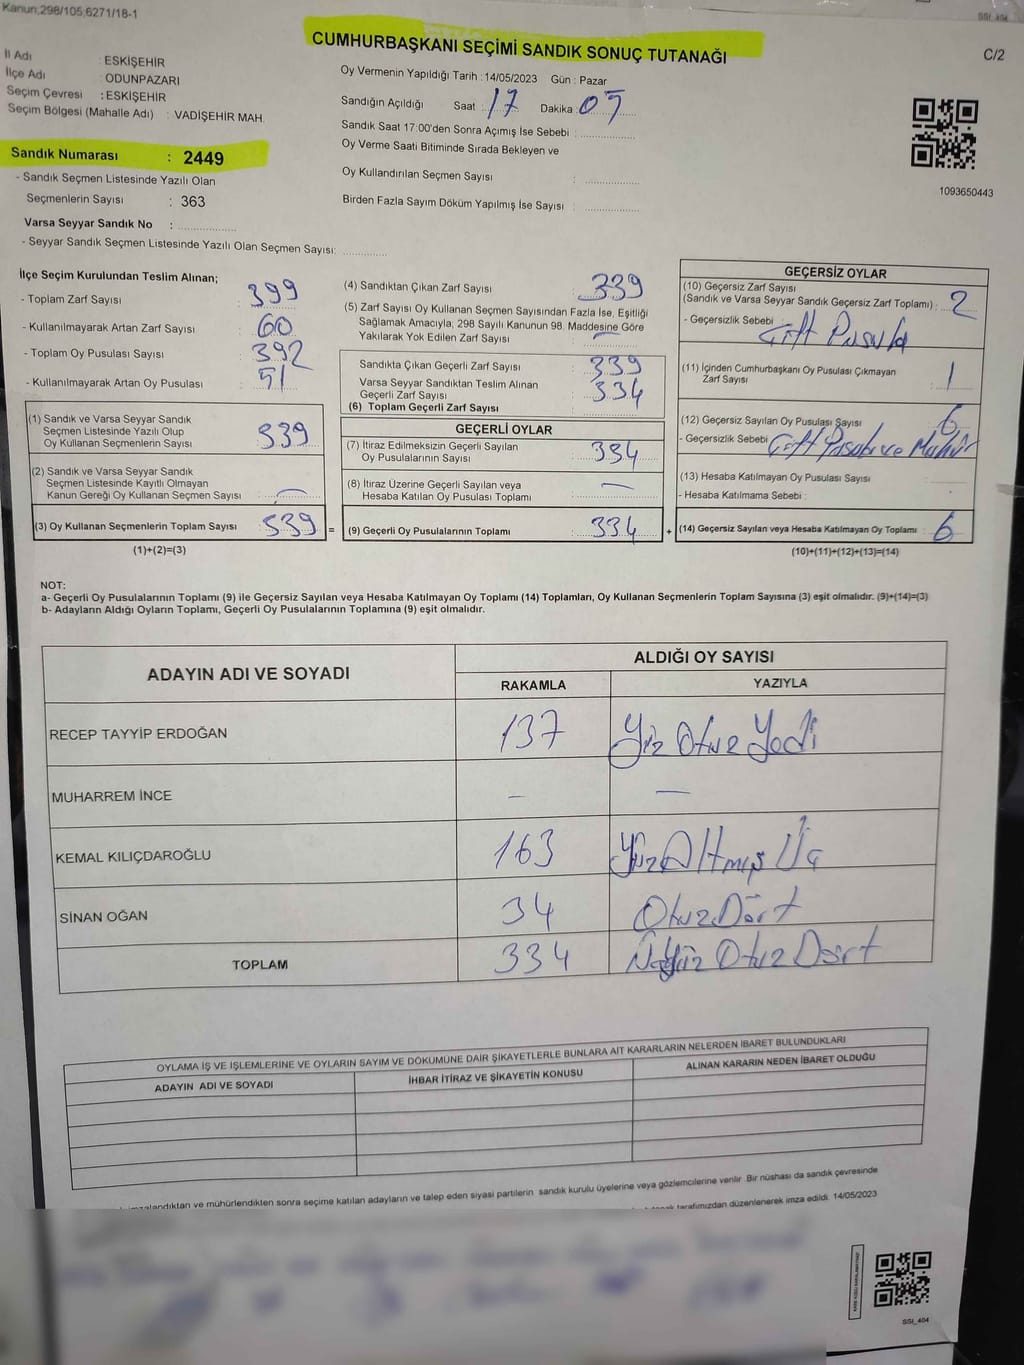 Kanun;298/105;6271/18-1
CUMHURBAŞKANI SEÇİMİ SANDIK SONUÇ TUTANAĞI
C/2
İl Adı : ESKİŞEHİR
İlçe Adı : ODUNPAZARI
Seçim Çevresi : ESKİŞEHİR
Seçim Bölgesi (Mahalle Adı) : VADİŞEHİR MAH.
Sandık Numarası : 2449
- Sandık Seçmen Listesinde Yazılı Olan
Seçmenlerin Sayısı : 363
Varsa Seyyar Sandık No :
- Seyyar Sandık Seçmen Listesinde Yazılı Olan Seçmen Sayısı:
Oy Vermenin Yapıldığı Tarih : 14/05/2023 Gün : Pazar
Sandığın Açıldığı Saat : 17 Dakika 05
Sandık Saat 17:00'den Sonra Açımış İse Sebebi :
Oy Verme Saati Bitiminde Sırada Bekleyen ve
Oy Kullandırılan Seçmen Sayısı :
Birden Fazla Sayım Döküm Yapılmış İse Sayısı :
1093650443
İlçe Seçim Kurulundan Teslim Alınan;
- Toplam Zarf Sayısı : 399
- Kullanılmayarak Artan Zarf Sayısı : 60
- Toplam Oy Pusulası Sayısı : 392
- Kullanılmayarak Artan Oy Pusulası : 51
(1) Sandık ve Varsa Seyyar Sandık
Seçmen Listesinde Yazılı Olup
Oy Kullanan Seçmenlerin Sayısı : 339
(2) Sandık ve Varsa Seyyar Sandık
Seçmen Listesinde Kayıtlı Olmayan
Kanun Gereği Oy Kullanan Seçmen Sayısı : —
(3) Oy Kullanan Seçmenlerin Toplam Sayısı : 339 =
(1)+(2)=(3)
(4) Sandıktan Çıkan Zarf Sayısı : 339
(5) Zarf Sayısı Oy Kullanan Seçmen Sayısından Fazla İse, Eşitliği
Sağlamak Amacıyla; 298 Sayılı Kanunun 98. Maddesine Göre
Yakılarak Yok Edilen Zarf Sayısı : —
Sandıkta Çıkan Geçerli Zarf Sayısı : 339
Varsa Seyyar Sandıktan Teslim Alınan
Geçerli Zarf Sayısı : 334
(6) Toplam Geçerli Zarf Sayısı :
GEÇERLİ OYLAR
(7) İtiraz Edilmeksizin Geçerli Sayılan
Oy Pusulalarının Sayısı : 334
(8) İtiraz Üzerine Geçerli Sayılan veya
Hesaba Katılan Oy Pusulası Toplamı : —
(9) Geçerli Oy Pusulalarının Toplamı : 334 +
GEÇERSİZ OYLAR
(10) Geçersiz Zarf Sayısı
(Sandık ve Varsa Seyyar Sandık Geçersiz Zarf Toplamı) : 2
- Geçersizlik Sebebi : Çift Pusula
(11) İçinden Cumhurbaşkanı Oy Pusulası Çıkmayan
Zarf Sayısı : 1
(12) Geçersiz Sayılan Oy Pusulası Sayısı : 6
- Geçersizlik Sebebi : Çift Pusula ve Mühür
(13) Hesaba Katılmayan Oy Pusulası Sayısı
- Hesaba Katılmama Sebebi :
(14) Geçersiz Sayılan veya Hesaba Katılmayan Oy Toplamı : 6
(10)+(11)+(12)+(13)=(14)
NOT:
a- Geçerli Oy Pusulalarının Toplamı (9) ile Geçersiz Sayılan veya Hesaba Katılmayan Oy Toplamı (14) Toplamları, Oy Kullanan Seçmenlerin Toplam Sayısına (3) eşit olmalıdır. (9)+(14)=(3)
b- Adayların Aldığı Oyların Toplamı, Geçerli Oy Pusulalarının Toplamına (9) eşit olmalıdır.
ADAYIN ADI VE SOYADI
ALDIĞI OY SAYISI
RAKAMLA YAZIYLA
RECEP TAYYİP ERDOĞAN 137 Yüz Otuz Yedi
MUHARREM İNCE — —
KEMAL KILIÇDAROĞLU 163 Yüz Altmış Üç
SİNAN OĞAN 34 Otuz Dört
TOPLAM 334 Üçyüz Otuz Dört
OYLAMA İŞ VE İŞLEMLERİNE VE OYLARIN SAYIM VE DÖKÜMÜNE DAİR ŞİKAYETLERLE BUNLARA AİT KARARLARIN NELERDEN İBARET BULUNDUKLARI
ADAYIN ADI VE SOYADI İHBAR İTİRAZ VE ŞİKAYETİN KONUSU ALINAN KARARIN NEDEN İBARET OLDUĞU
imzalandıktan ve mühürlendikten sonra seçime katılan adayların ve talep eden siyasi partilerin sandık kurulu üyelerine veya gözlemcilerine verilir. Bir nüshası da sandık çevresinde
tarafımızdan düzenlenerek imza edildi. 14/05/2023
SSI_404